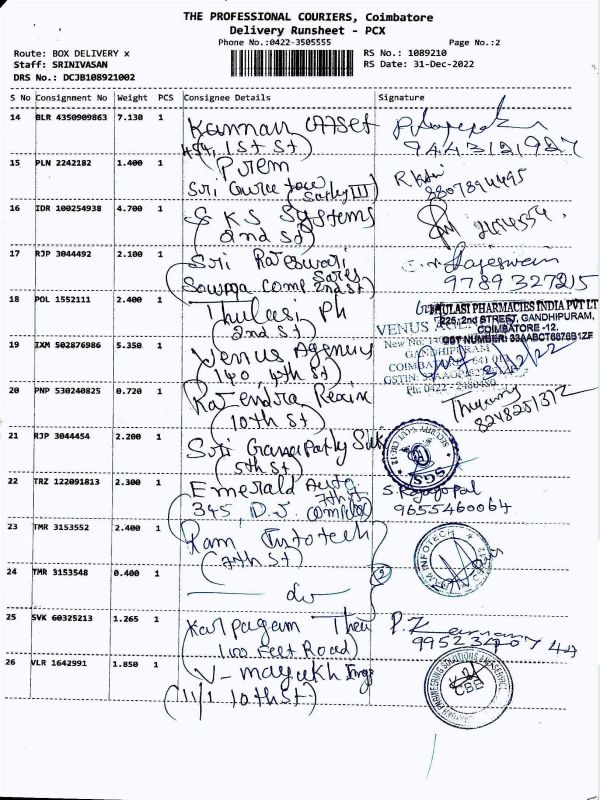 THE PROFESSIONAL COURIERS, Coimbatore
Delivery Runsheet - PCX
Phone No.:0422-3505555
Page No.:2
Route: BOX DELIVERY x
Staff: SRINIVASAN
DRS No.: DCJB108921002
RS No.: 1089210
RS Date: 31-Dec-2022
S No Consignment No Weight PCS Consignee Details Signature
14 BLR 4350909863 7.130 1 Kannan Offset
1st St)
9443121987
15 PLN 2242182 1.400 1 Prem
Sri Guru
16 IDR 100254938 4.700 1 S K S Systems
(2nd St)
17 RJP 3044492 2.100 1 Sri Rajeswari
Sarees
Comp 2nd St)
9789 327215
18 POL 1552111 2.400 1 Thulasi Ph
(2nd St)
THULASI PHARMACIES INDIA PVT LT
225, 2nd STREET, GANDHIPURAM,
COIMBATORE -12.
GST NUMBER: 33AABCT6676B1ZE
19 IXM 502876986 5.350 1 Venus Agencies
140 4th St)
VENUS
New No. 140
GANDHIPURAM
GSTIN:
Ph: 0422 - 2480450
20 PNP 530240825 0.720 1 Rajendra Rexin
(10th St)
8248251372
21 RJP 3044454 2.200 1 Sri Ganapathy Silk
(5th St)
SGS
22 TRZ 122091813 2.300 1 Emerald Auto
7th St
345, D.J. Complex)
S. Rajagopal
9655460064
23 TMR 3153552 2.400 1 Ram Infotech
(7th St)
RAM INFOTECH
24 TMR 3153548 0.400 1 — do —
2
25 SVK 60325213 1.265 1 Karpagam
(100 Feet Road)
26 VLR 1642991 1.850 1 V-mayukh Engg
(11/1 10th St)
ENGINEERING SOLUTIONS &
CBE